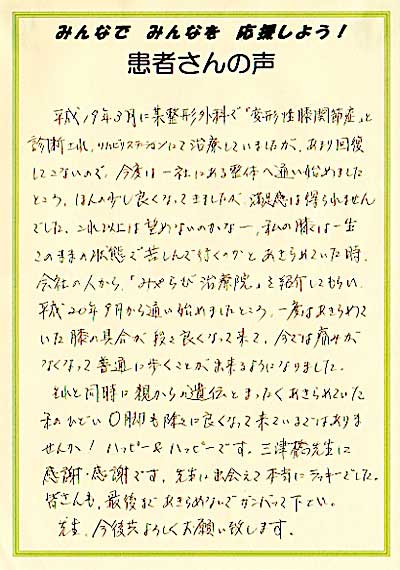 みんなで みんなを 応援しよう!
患者さんの声
平成19年3月に某整形外科で“変形性膝関節症”と
診断され、リハビリステーションにて治療していましたが、あまり回復
してこないので、今度は一社にある整体へ通い始めました
ところ、ほんの少し良くなってきましたが、満足感は得られません
でした。これ以上は望めないのかなー、私の膝は一生
このままの状態で苦しんで行くのかとあきらめていた時、
会社の人から、「みやらび治療院」を紹介してもらい、
平成20年9月から通い始めましたところ、一度はあきらめて
いた膝の具合が段々良くなって来て、今では痛みが
なくなって普通に歩くことが出来るようになりました。
それと同時に親からの遺伝とまったくあきらめていた
私のひどいO脚も除々に良くなって来ているではありま
せんか! ハッピー&ハッピーです。三津橋先生に
感謝・感謝です。先生に出会えて本当にラッキーでした。
皆さんも、最後まであきらめないでガンバって下さい。
先生、今後共よろしくお願い致します。